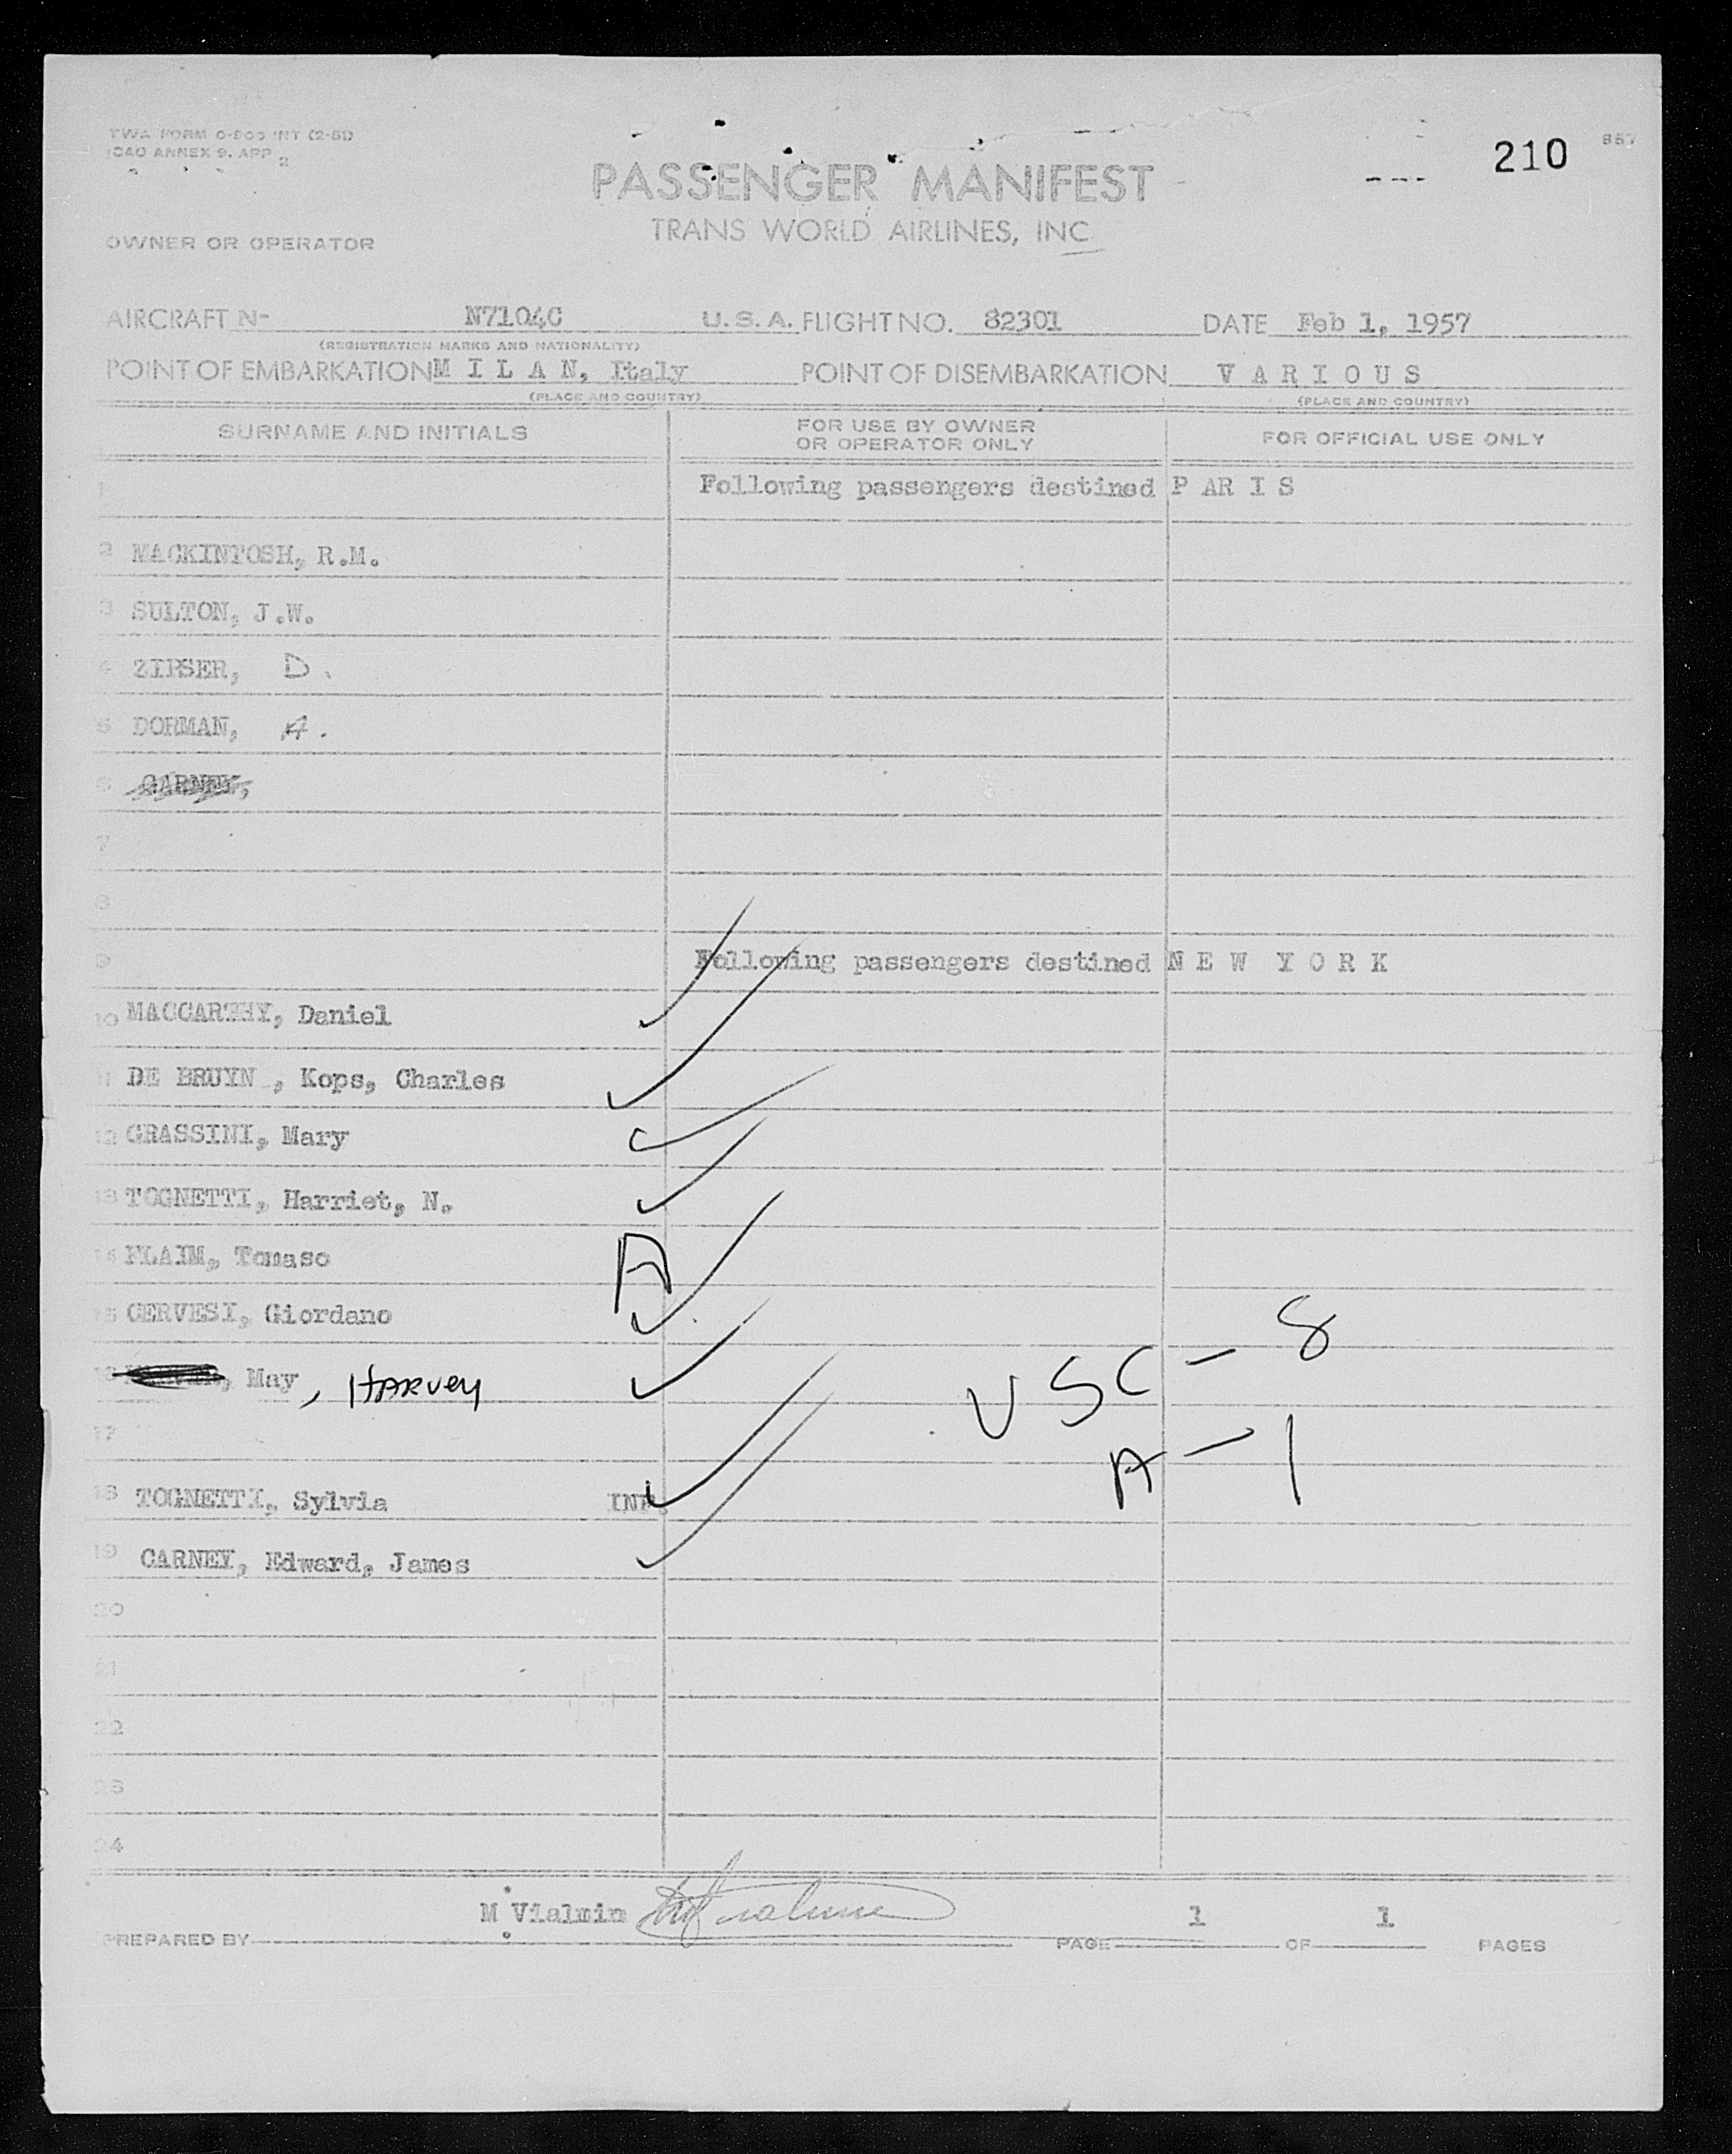 TWA FORM O-800 INT (2-51)
ICAO ANNEX 9, APP 2
210
PASSENGER MANIFEST
TRANS WORLD AIRLINES, INC
OWNER OR OPERATOR
AIRCRAFT N- N7104C U.S.A. FLIGHT NO. 82301 DATE Feb 1, 1957
(REGISTRATION MARKS AND NATIONALITY)
POINT OF EMBARKATION M I L A N, Italy POINT OF DISEMBARKATION V A R I O U S
(PLACE AND COUNTRY) (PLACE AND COUNTRY)
SURNAME AND INITIALS FOR USE BY OWNER OR OPERATOR ONLY FOR OFFICIAL USE ONLY
1 Following passengers destined P AR I S
2 MACKINTOSH, R.M.
3 SULTON, J.W.
4 ZIPSER, D.
5 DORMAN, A.
6 CARNEY,
7
8
9 Following passengers destined N E W Y O R K
10 MACCARTHY, Daniel
11 DE BRUYN , Kops, Charles
12 GRASSINI, Mary
13 TOGNETTI, Harriet, N.
14 FLAIM, Tomaso A
15 CERVESI, Giordano
16 , May , HARVEY
USC - 8
17
A - 1
18 TOGNETTI, Sylvia INF.
19 CARNEY, Edward, James
20
21
22
23
24
M Vialmin
PREPARED BY PAGE 1 OF 1 PAGES